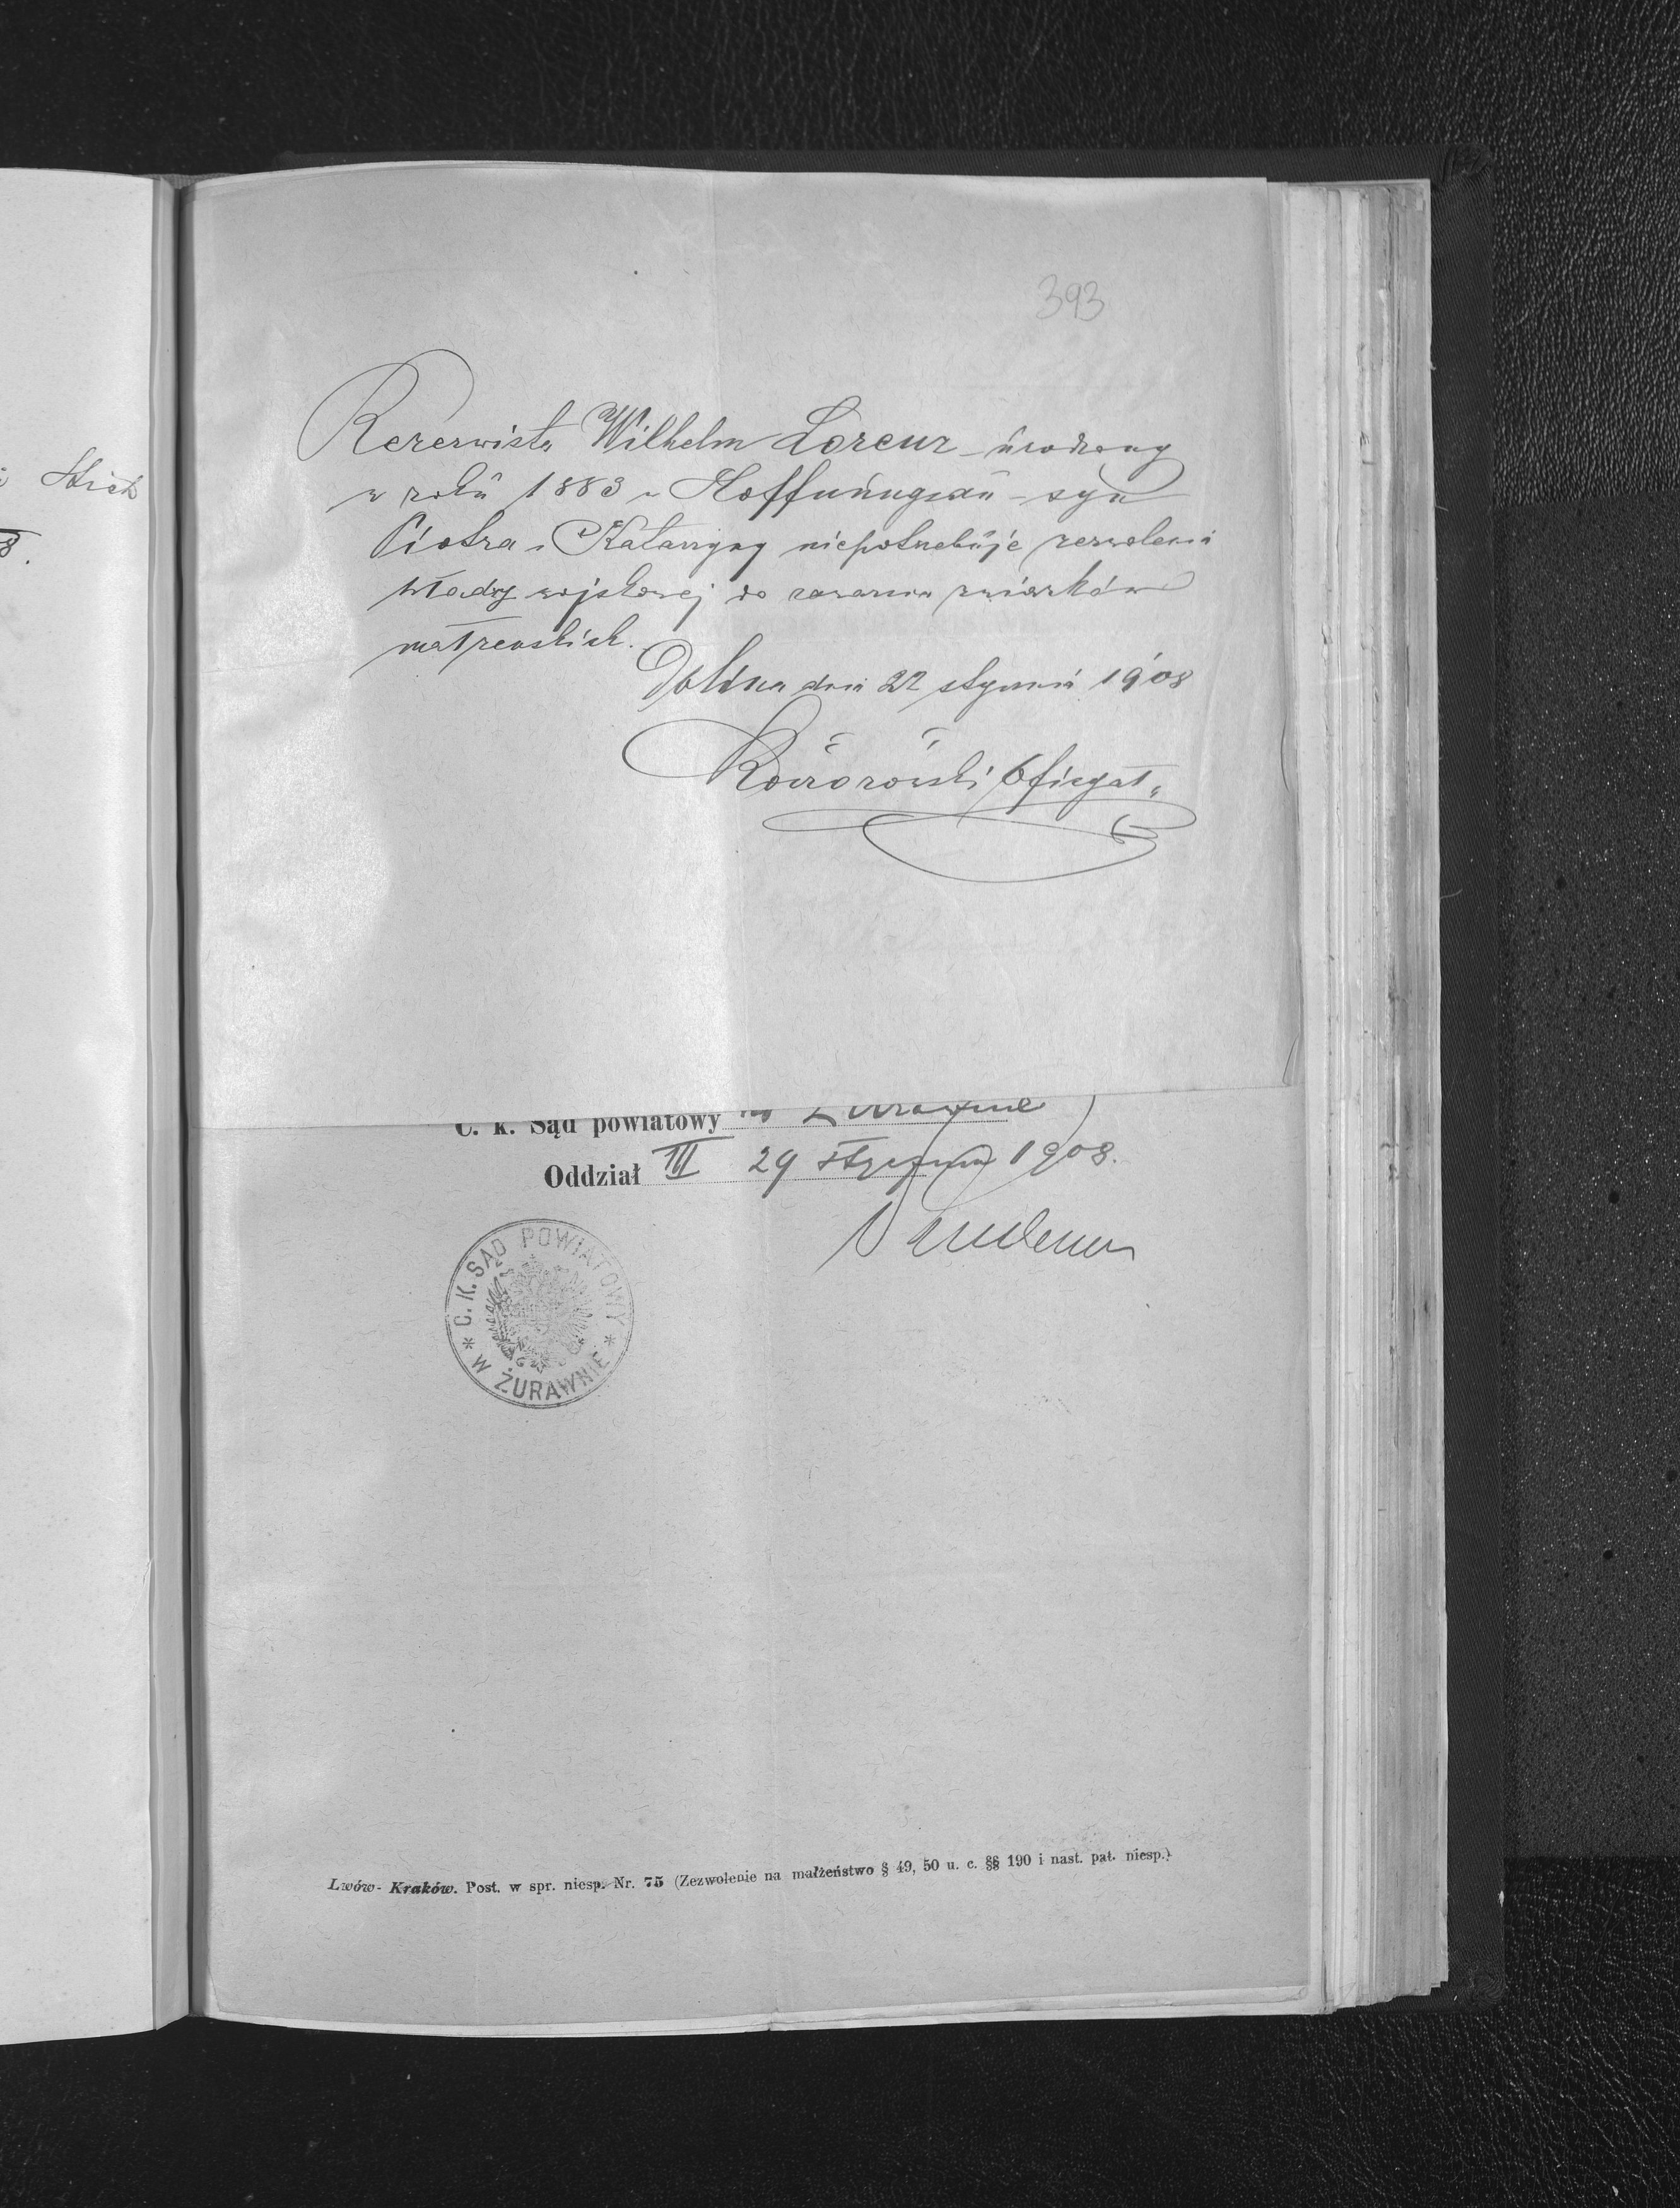 393
Rezerwista Wilhelm Lorenz urodzony
w roku 1883 w Hoffnungsau syn
Piotra i Katarzyny niepotrzebuje zezwolenia
władzy wojskowej do zawarcia związków
małżeńskich.
Dolina dnia 22 stycznia 1908
C. k. Sąd powiatowy w Żurawnie
Oddział III 29 stycznia 1908.
* C. K. SĄD POWIATOWY *
W ŻURAWNIE
Lwów-Kraków. Post. w spr. niesp. Nr. 75 (Zezwolenie na małżeństwo § 49, 50 u. c. §§ 190 i nast. pat. niesp.)